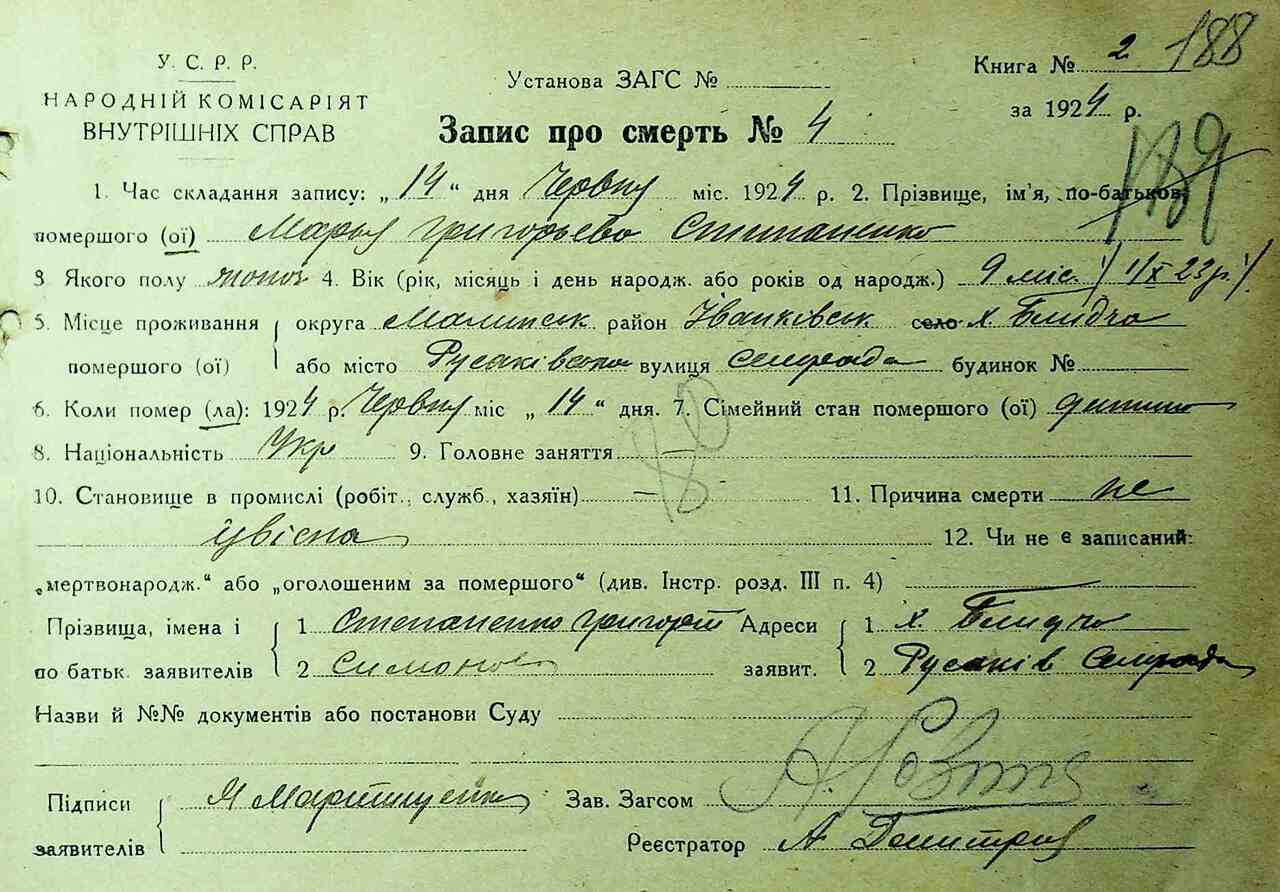 У. С. Р. Р.
НАРОДНІЙ КОМІСАРІЯТ
ВНУТРІШНІХ СПРАВ
Установа ЗАГС №
Книга № 2 188
за 1924 р.
Запис про смерть № 4
189
1. Час складання запису: „14“ дня Червня міс. 1924 р. 2. Прізвище, ім'я, по-батькові
помершого (ої) Марья Григорьева Степаненко
3 Якого полу жіноч 4. Вік (рік, місяць і день народж. або років од народж.) 9 міс. /1/X 23 р/.
5. Місце проживання помершого (ої) округа Малинськ район Іванківськ село х. Блидча
або місто Русаківська вулиця сельрада будинок №
6. Коли помер (ла): 1924 р. Червня міс „14“ дня. 7. Сімейний стан помершого (ої) дитина
8. Національність Укр 9. Головне заняття —
180
10. Становище в промислі (робіт., служб., хазяїн) — 11. Причина смерти не
ізвісна 12. Чи не є записаний:
„мертвонародж.“ або „оголошеним за помершого“ (див. Інстр. розд. III п. 4)
Прізвища, імена і по батьк. заявителів 1 Степаненко Григорій Адреси заявит. 1 х. Блидча
2 Симонов 2 Русаків Сельрада
Назви й №№ документів або постанови Суду
Підписи заявителів Зав. Загсом
Реєстратор А